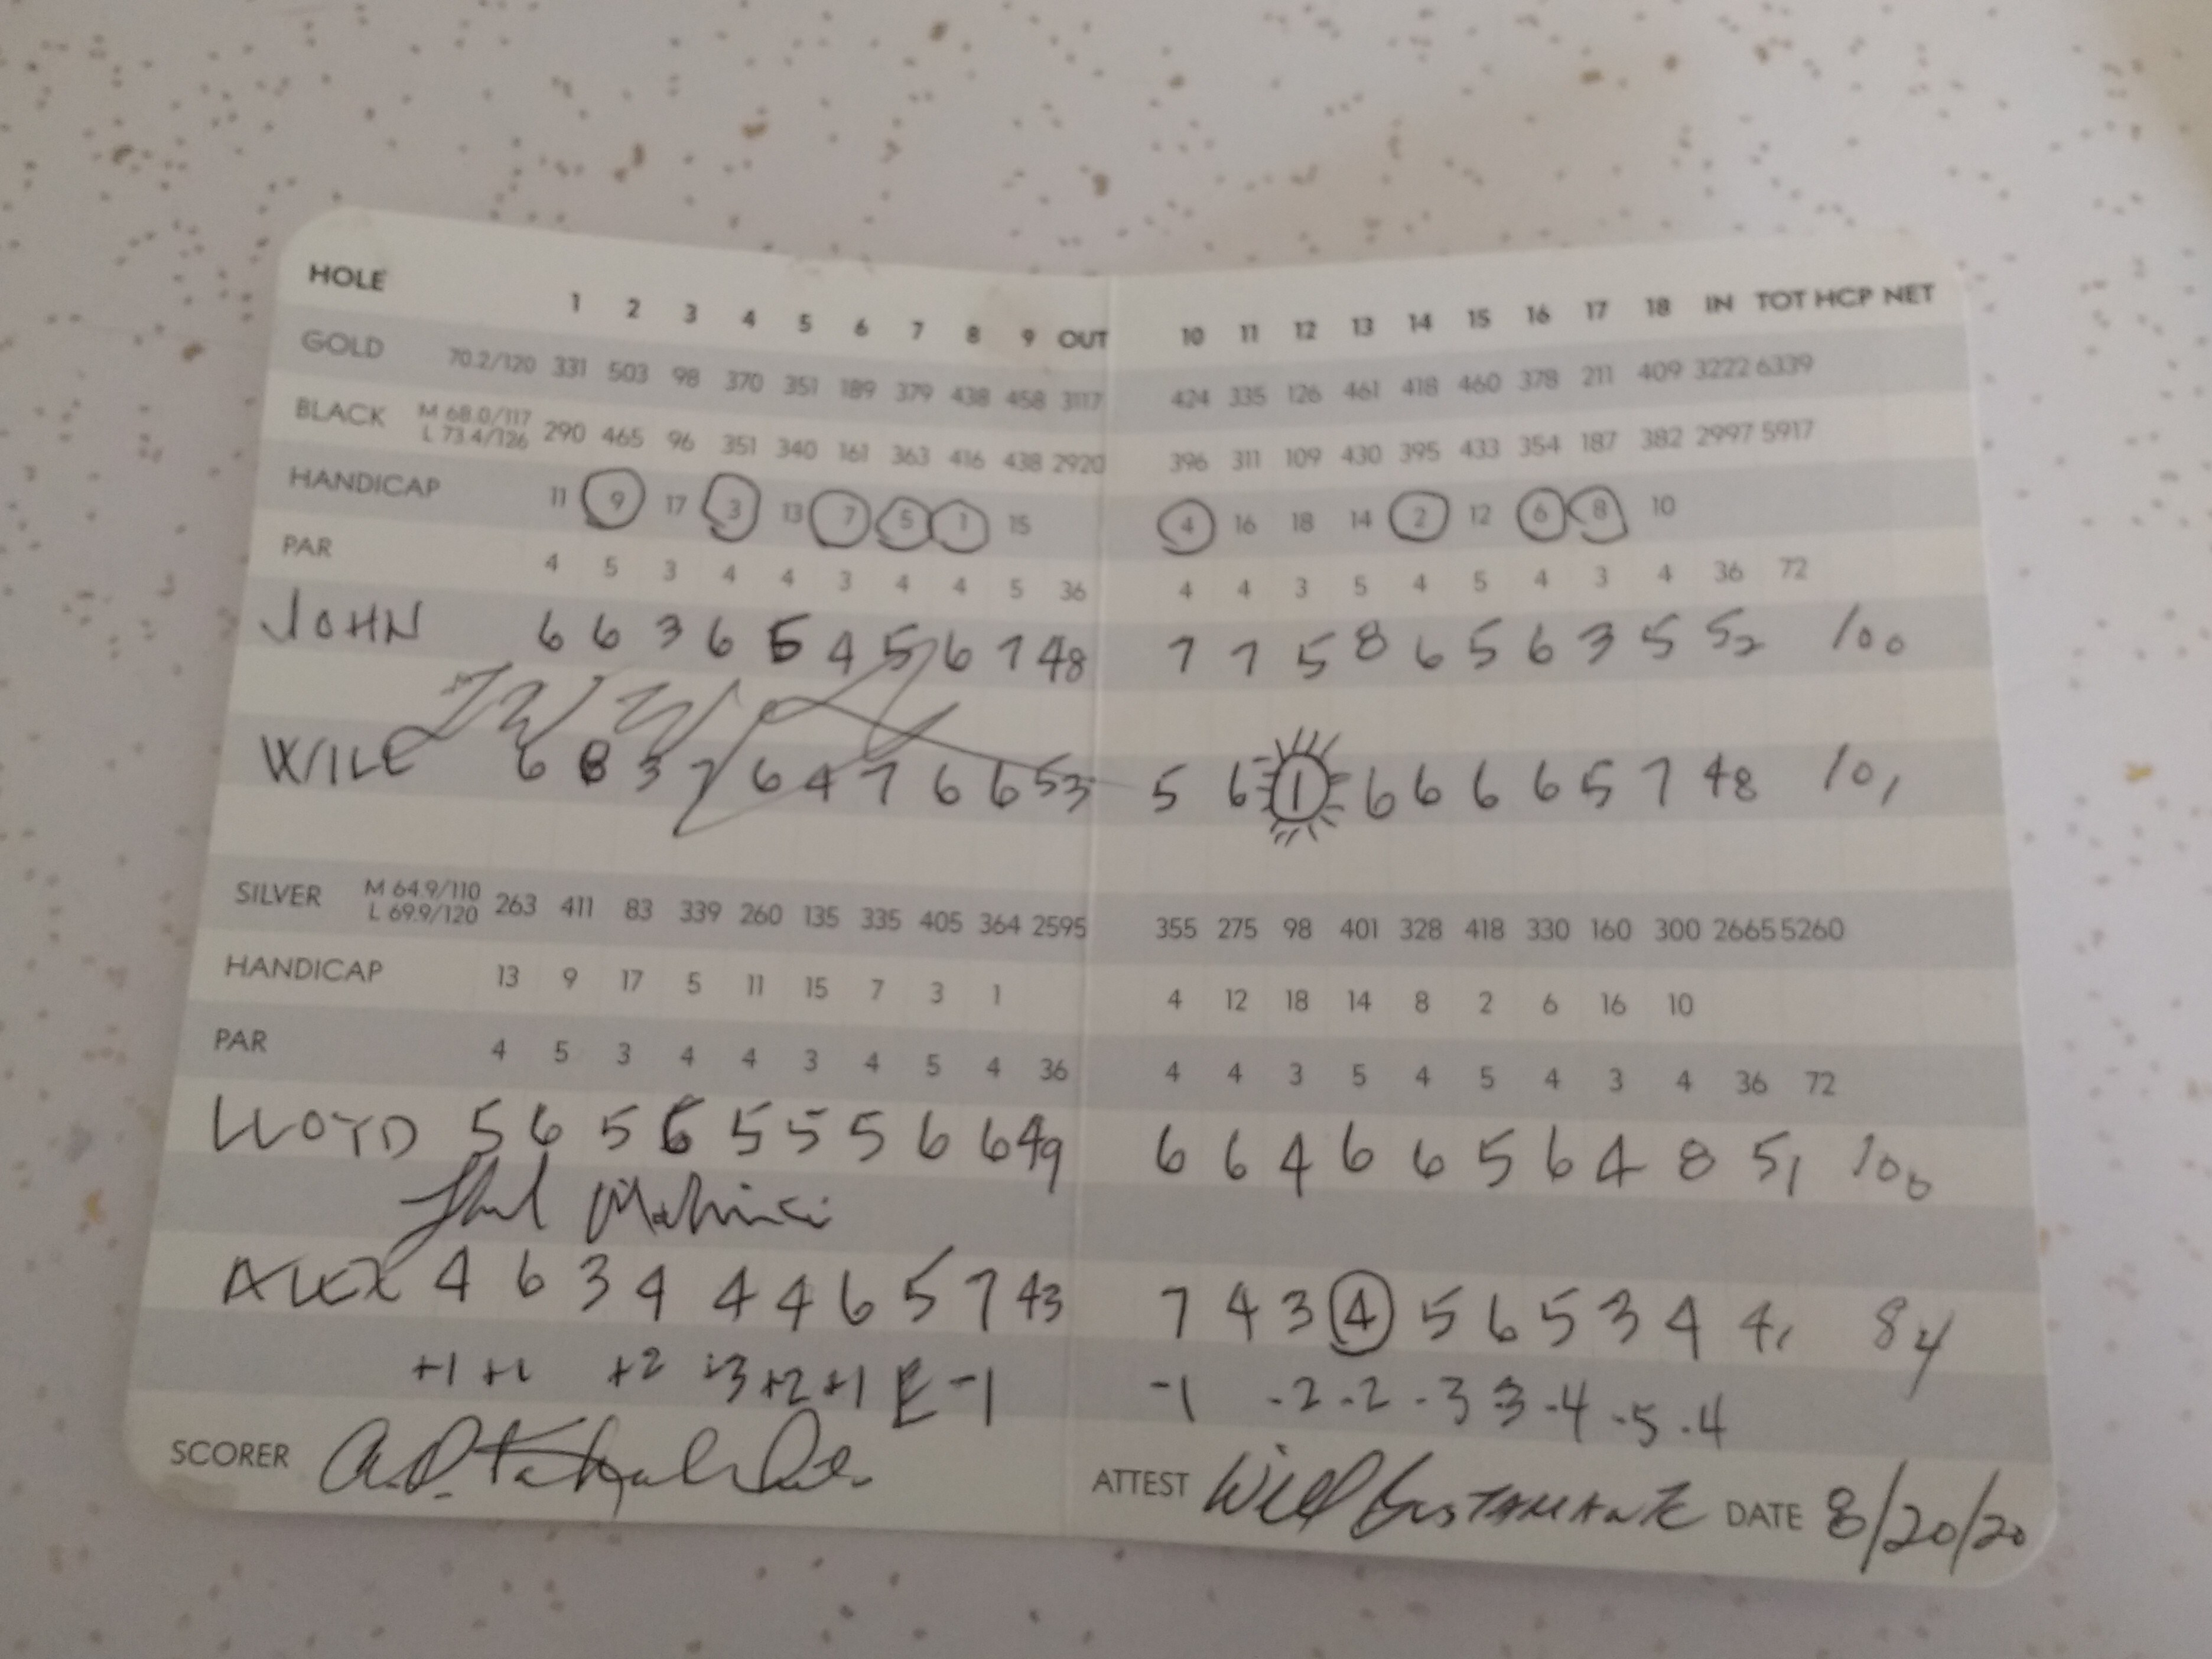 HOLE 1 2 3 4 5 6 7 8 9 OUT 10 11 12 13 14 15 16 17 18 IN TOT HCP NET
GOLD 70.2/120 331 503 98 370 351 189 379 438 458 3117 424 335 126 461 418 460 378 211 409 3222 6339
BLACK M 68.0/117 L 73.4/126 290 465 96 351 340 161 363 416 438 2920 396 311 109 430 395 433 354 187 382 2997 5917
HANDICAP 11 9 17 3 13 7 5 1 15 4 16 18 14 2 12 6 8 10
PAR 4 5 3 4 4 3 4 4 5 36 4 4 3 5 4 5 4 3 4 36 72
JOHN 6 6 3 6 5 4 5 6 7 48 7 7 5 8 6 5 6 3 5 52 100
WILL 6 8 3 7 6 4 7 6 6 53 5 6 1 6 6 6 6 5 7 48 101
SILVER M 64.9/110 L 69.9/120 263 411 83 339 260 135 335 405 364 2595 355 275 98 401 328 418 330 160 300 2665 5260
HANDICAP 13 9 17 5 11 15 7 3 1 4 12 18 14 8 2 6 16 10
PAR 4 5 3 4 4 3 4 5 4 36 4 4 3 5 4 5 4 3 4 36 72
LLOYD 5 6 5 6 5 5 5 6 6 49 6 6 4 6 6 5 6 4 8 51 100
ALEX 4 6 3 4 4 4 6 5 7 43 7 4 3 4 5 6 5 3 4 41 84
+1 +1 +2 +3 +2 +1 E -1 -1 -2 -2 -3 -3 -4 -5 -4
SCORER ATTEST Will BUSTAMANTE DATE 8/20/20